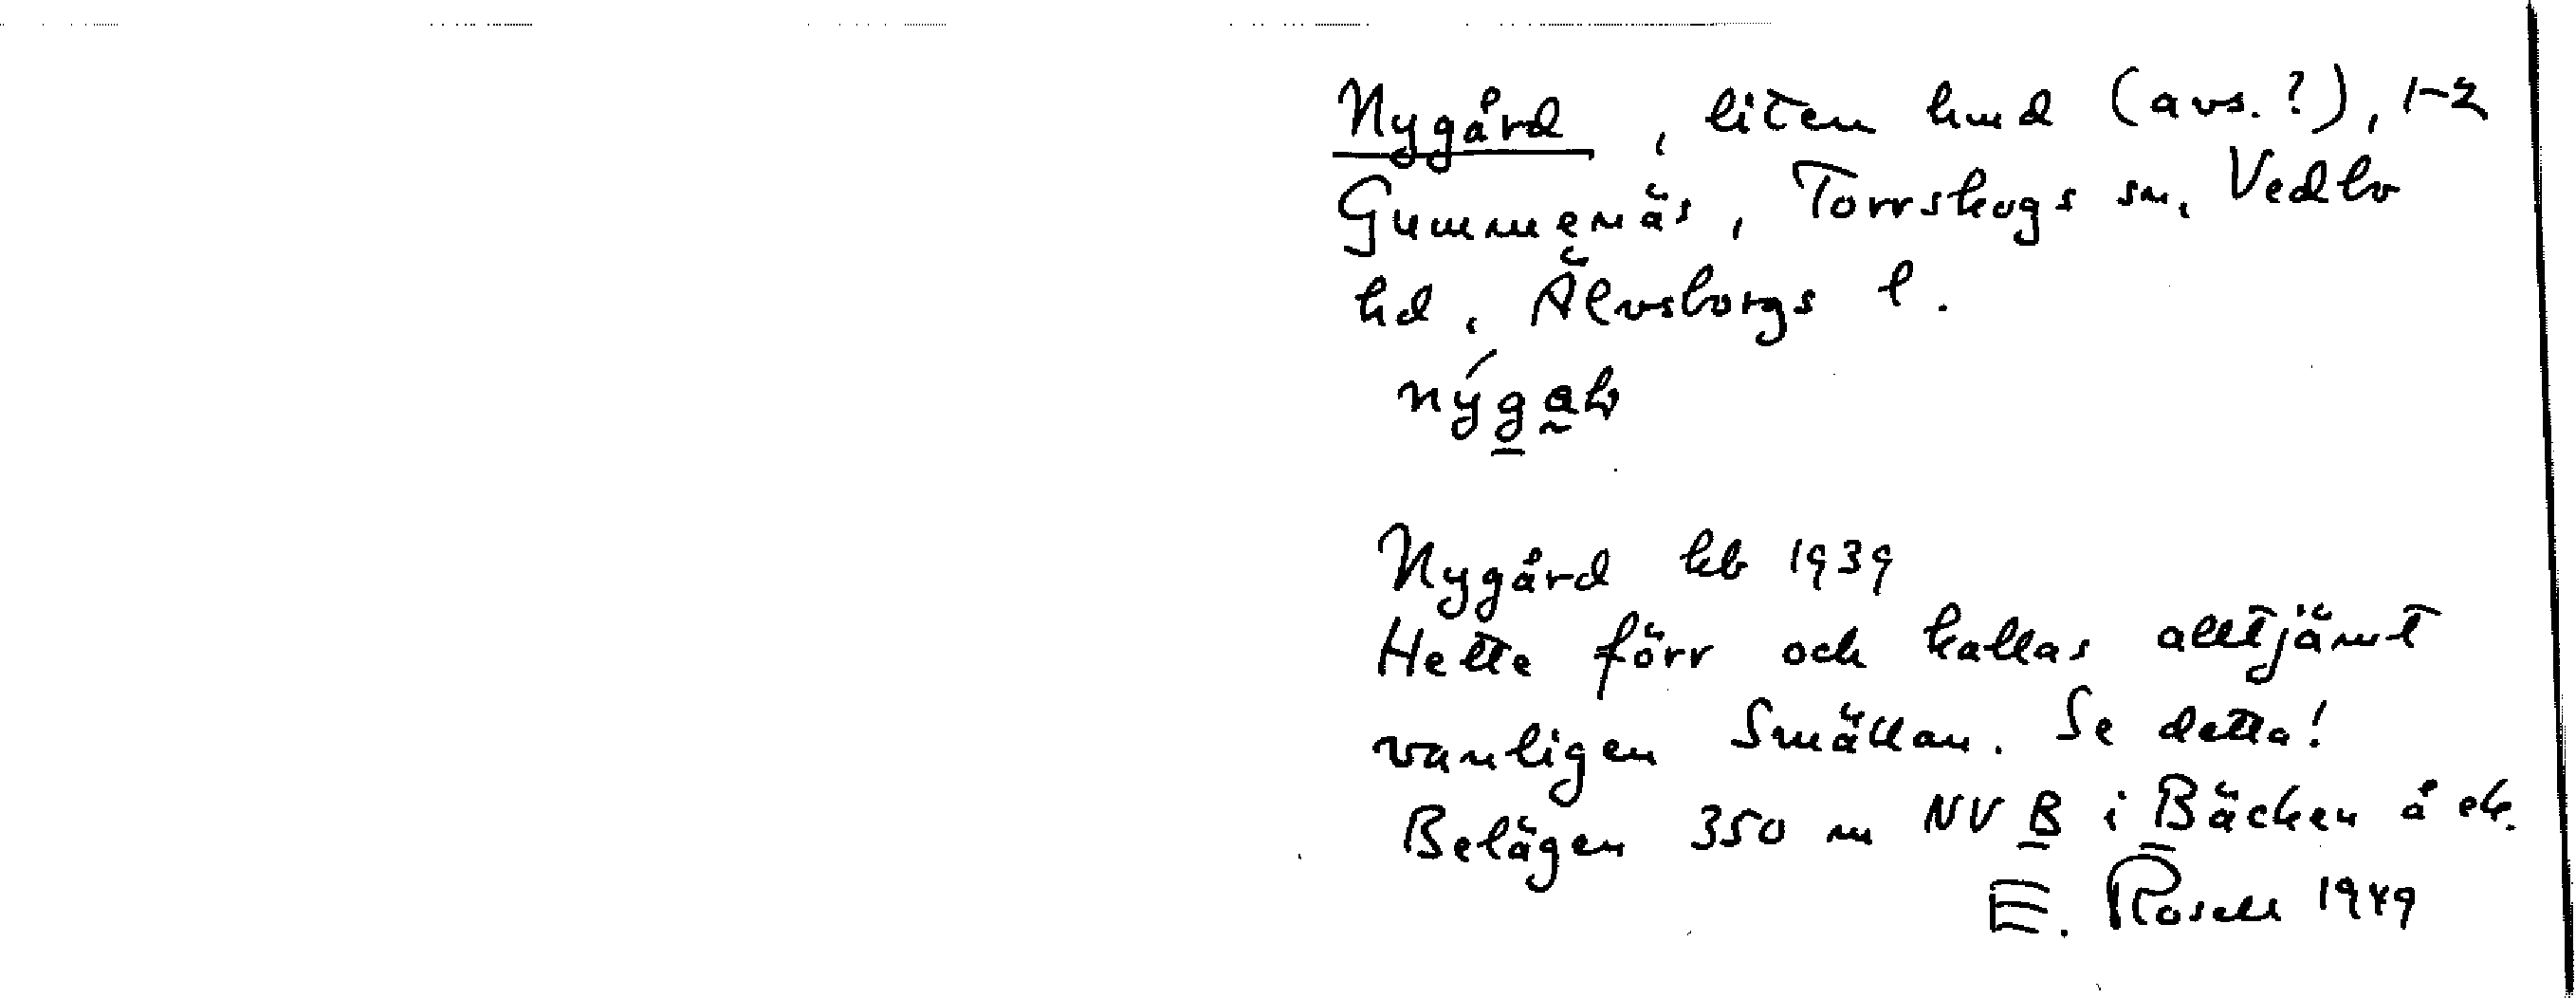 Nygård, liten hmd (avs.?), 1-2
Gummenäs, Torrskogs sn, Vedbo
hd, Älvsborgs l.
Nygård kb 1939
Hette förr och kallas alltjämt
vanligen Smällan. Se detta!
Belägen 350 m NV B i Bäcken å ek.
E. Rosell 1949